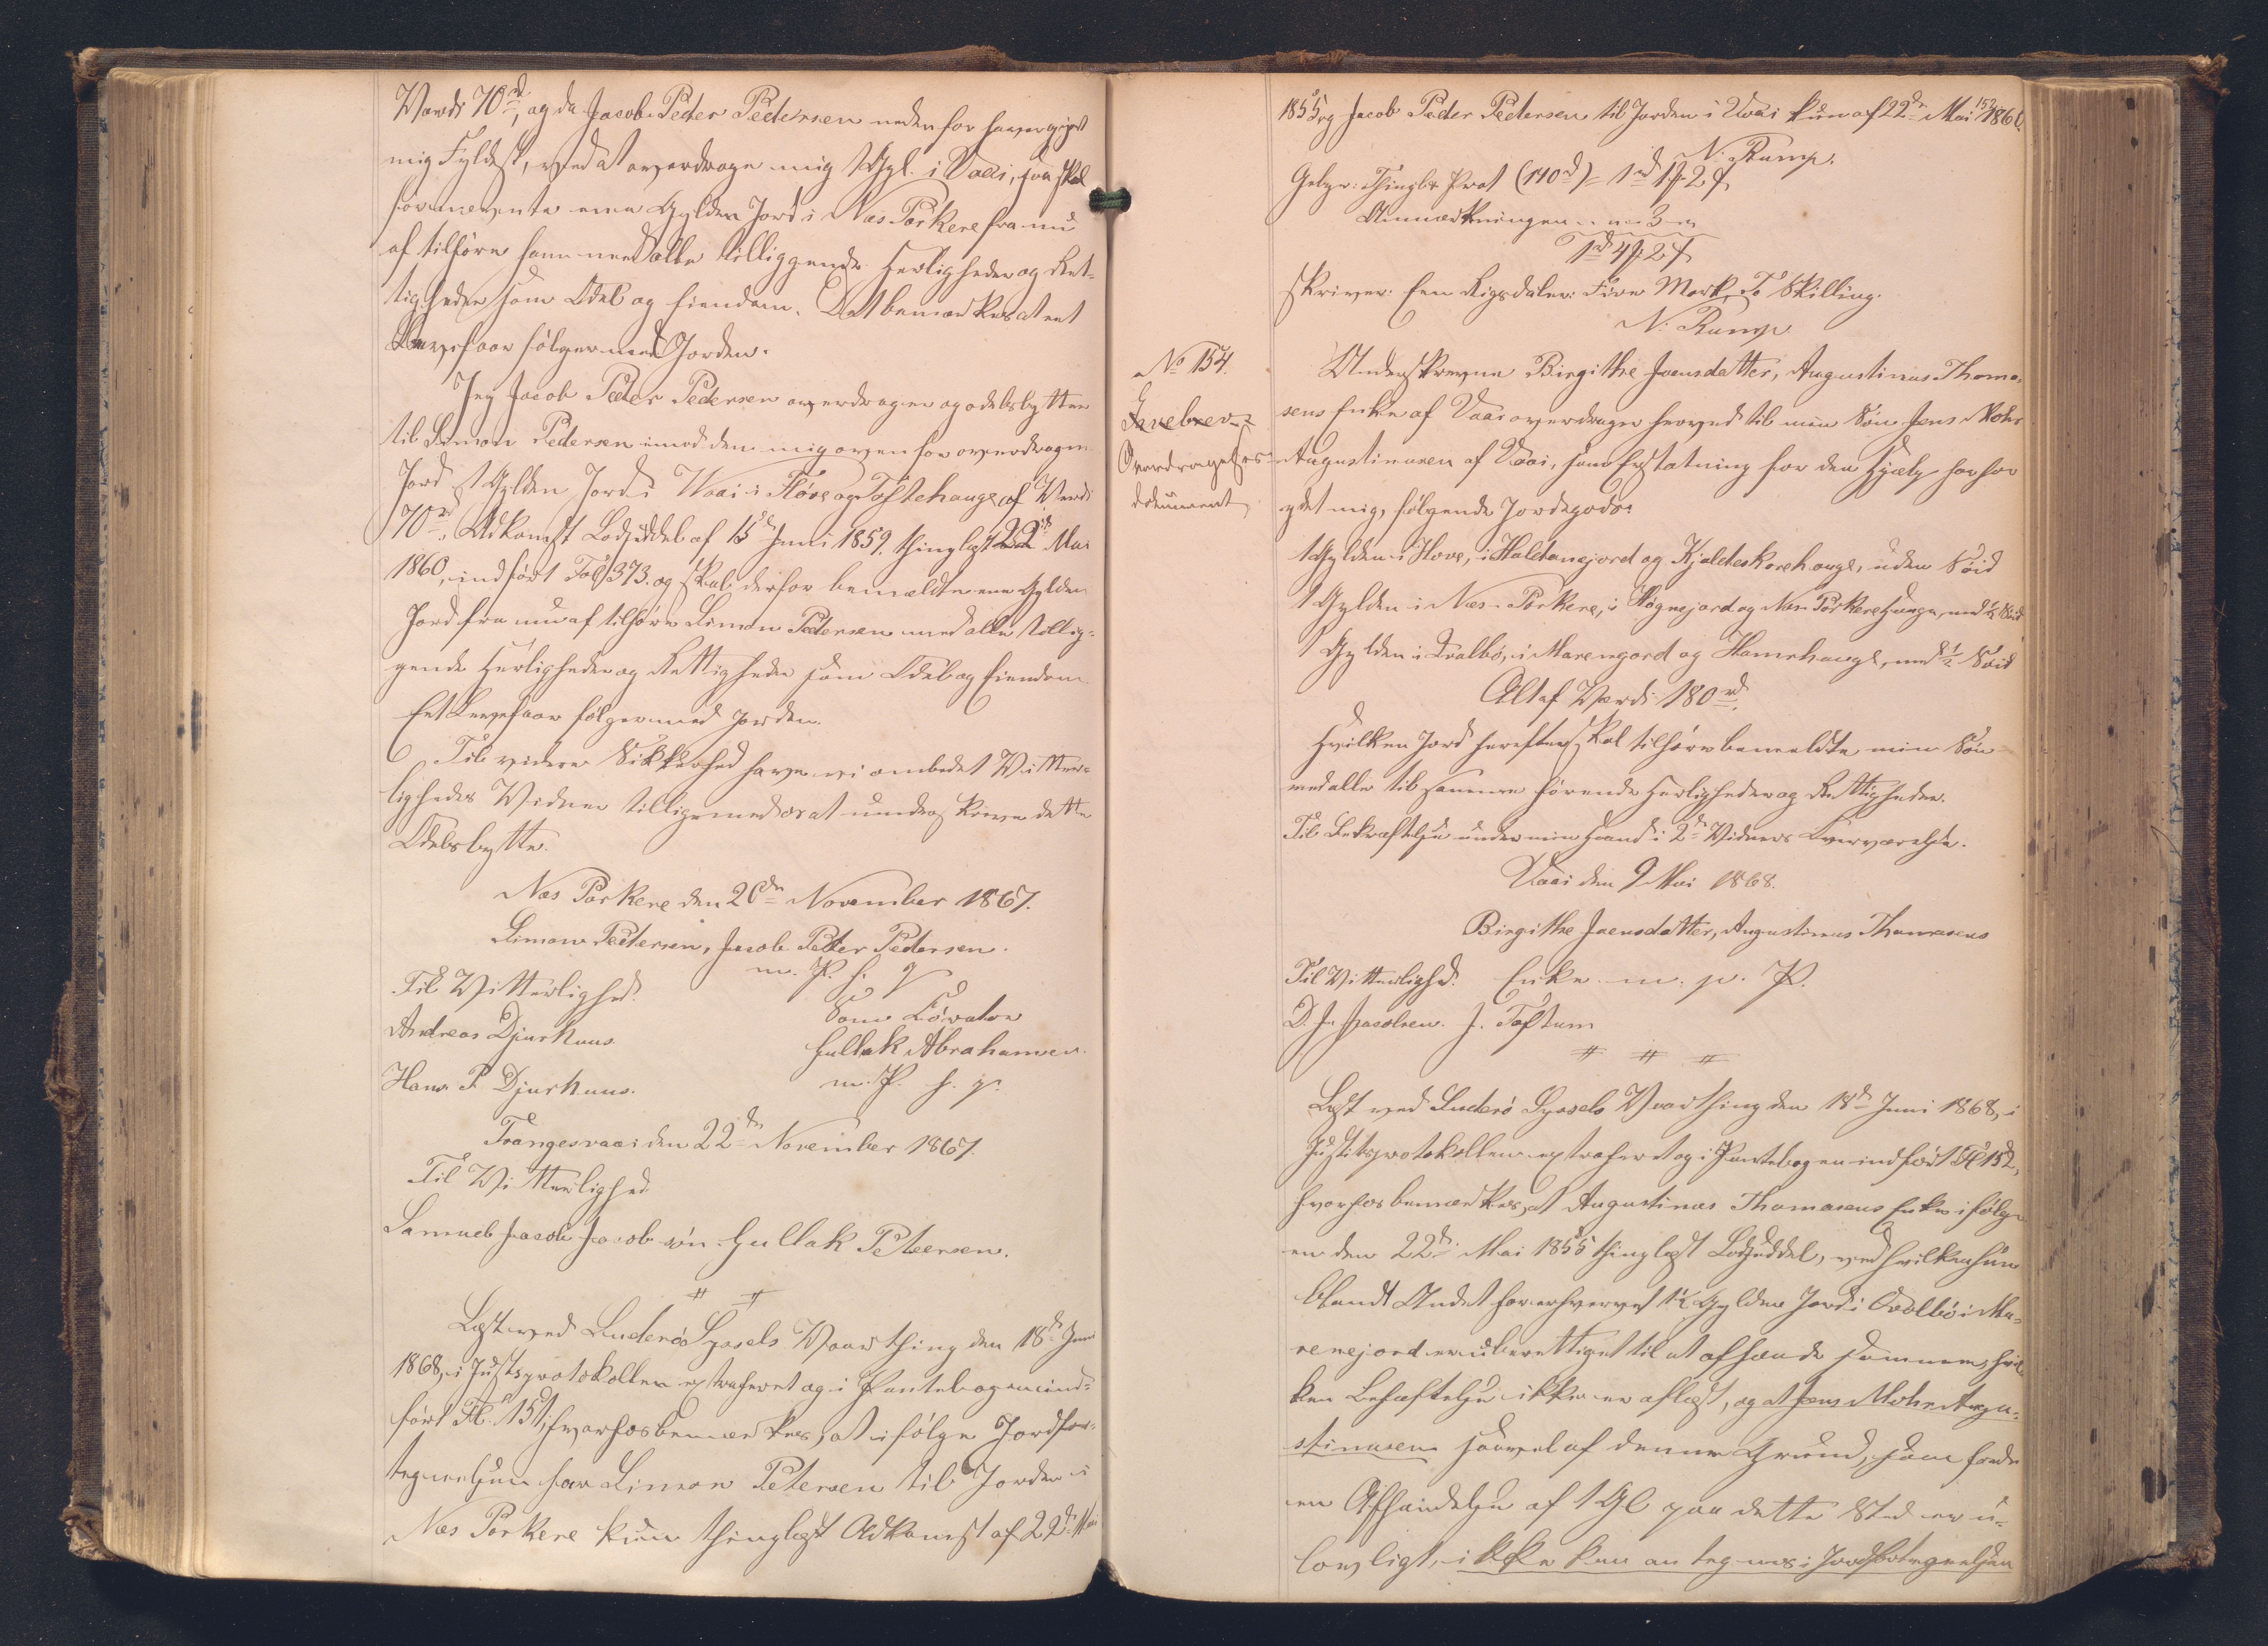 Værdi 70rd, og da Jacob Peder Pedersen nedenfor haver gjort
mig Fyldest, ved at overdrage mig 1 Gyl. i Vaai, saa skal
fornævnte ene Gylden Jord i Næs Porkere fra nu
af tilhøre ham med alle tilliggende Herligheder og Ret-
tigheder som Odel og Eiendom. Det bemærkes at eet
Levefaar følger med Jorden.
Jeg Jacob Peder Pedersen overdrager og odelsbytter
til Simon Pedersen imod den mig ovenfor overdragne
Jord 1 Gylden Jord i Waai i Høve og Toftehauge af Værdi
70rd, Adkomst Lodseddel af 15de Juni 1859. thinglæst 22de Mai
1860, indført Fol 373. og skal derfor bemældte ene Gylden
Jord fra nu af tilhøre Simon Pedersen med alle tillig-
gende Herligheder og Rettigheder som Odel og Eiendom
Eet Levefaar følger med Jorden.
Til videre Sikkerhed have vi ombedet Vitter-
ligheds Vidner tilligemed os at underskrive dette
Odelsbytte.
Næs Porkere den 20de November 1867.
Simon Pedersen, Jacob Peder Pedersen.
m. P. f. g
Til Vitterlighed.
Som Lovalve
Andreas Djurhuus
Gullak Abrahamsen.
Hans P. Djurhuus.
m. P. f. g.
Trangesvaai den 22de November 1867.
Til Vitterlighed
Samuel Jacob Jacobsøn Gullak Petersen.
# #
Læst ved Suderø Syssels Vaarthing den 18de Juni
1868, i Justitsprotokollen extraheret og i Pantebogen ind-
ført Fol. 151, hvorhos bemærkes, at ifølge Jordfor-
tegnelsen har Simon Petersen til Jorden i
Næs Porkere kun thinglæst Adkomst af 22de Mai
152
1855 og Jacob Peder Pedersen til Jorden i Vaai kun af 22de Mai 1860.
N. Rump.
Gebyr: Thingl. Prot (140rd) = 1rd 1 2
Anmærkningen 3
1rd 4 2
skriver: Een Rigsdaler Fire Mark To Skilling.
N. Rump
No 154.
Overdragelses-
dokument
Underskrevne Birgithe Joensdatter, Augustinus Thoma-
sens Enke af Vaai overdrager herved til min Søn Jens Mohr
Augustinusen af Vaai, som Erstatning for den Hjælp han har
ydet mig, følgende Jordegods:
1 Gylden i Hove, i Haldanejord og Kjaldeskorehauge, uden Bøid
1 Gylden i Næs-Porkere, i Høgnejord og Næs Porkere Hauge, med 1/2
1 Gylden i Qvalbø, i Marengord og Hamrhauge, med 1/2
Alt af Værdi 180rd.
Hvilken Jord herefter skal tilhøre bemeldte min Søn
med alle til samme hørende Herligheder og Rettigheder.
Til Bekræftelse under min Haand i 2de Vidners Overværelse.
Vaai den 9 Mai 1868.
Birgithe Joensdatter, Augustinus Thomasens
Til Vitterlighed. Enke m. p. P.
D. J. Jacobsen. J. Toftum
# # #
Læst ved Suderø Syssels Vaarthing den 18de Juni 1868, i
Justitsprotokollen extraheret og i Pantebogen indført Fol 152,
hvorhos bemærkes, at Augustinus Thomasens Enke ifølge
en den 22de Mai 1855 thinglæst Lodseddel, ved hvilken hun
blandt Andet har erhvervet 1 1/2 Gylden Jord i Qvalbø i Ma-
renejord er uberettiget til at afhænde samme, hvil-
ken Behæftelse ikke er aflæst, og at Jens Mohr Augu-
stinusen saavel af denne Grund, som fordi
en Afhændelse af 1 Gl paa dette Sted er u-
lovligt, ikke kan antegnes i Jordfortegnelsen